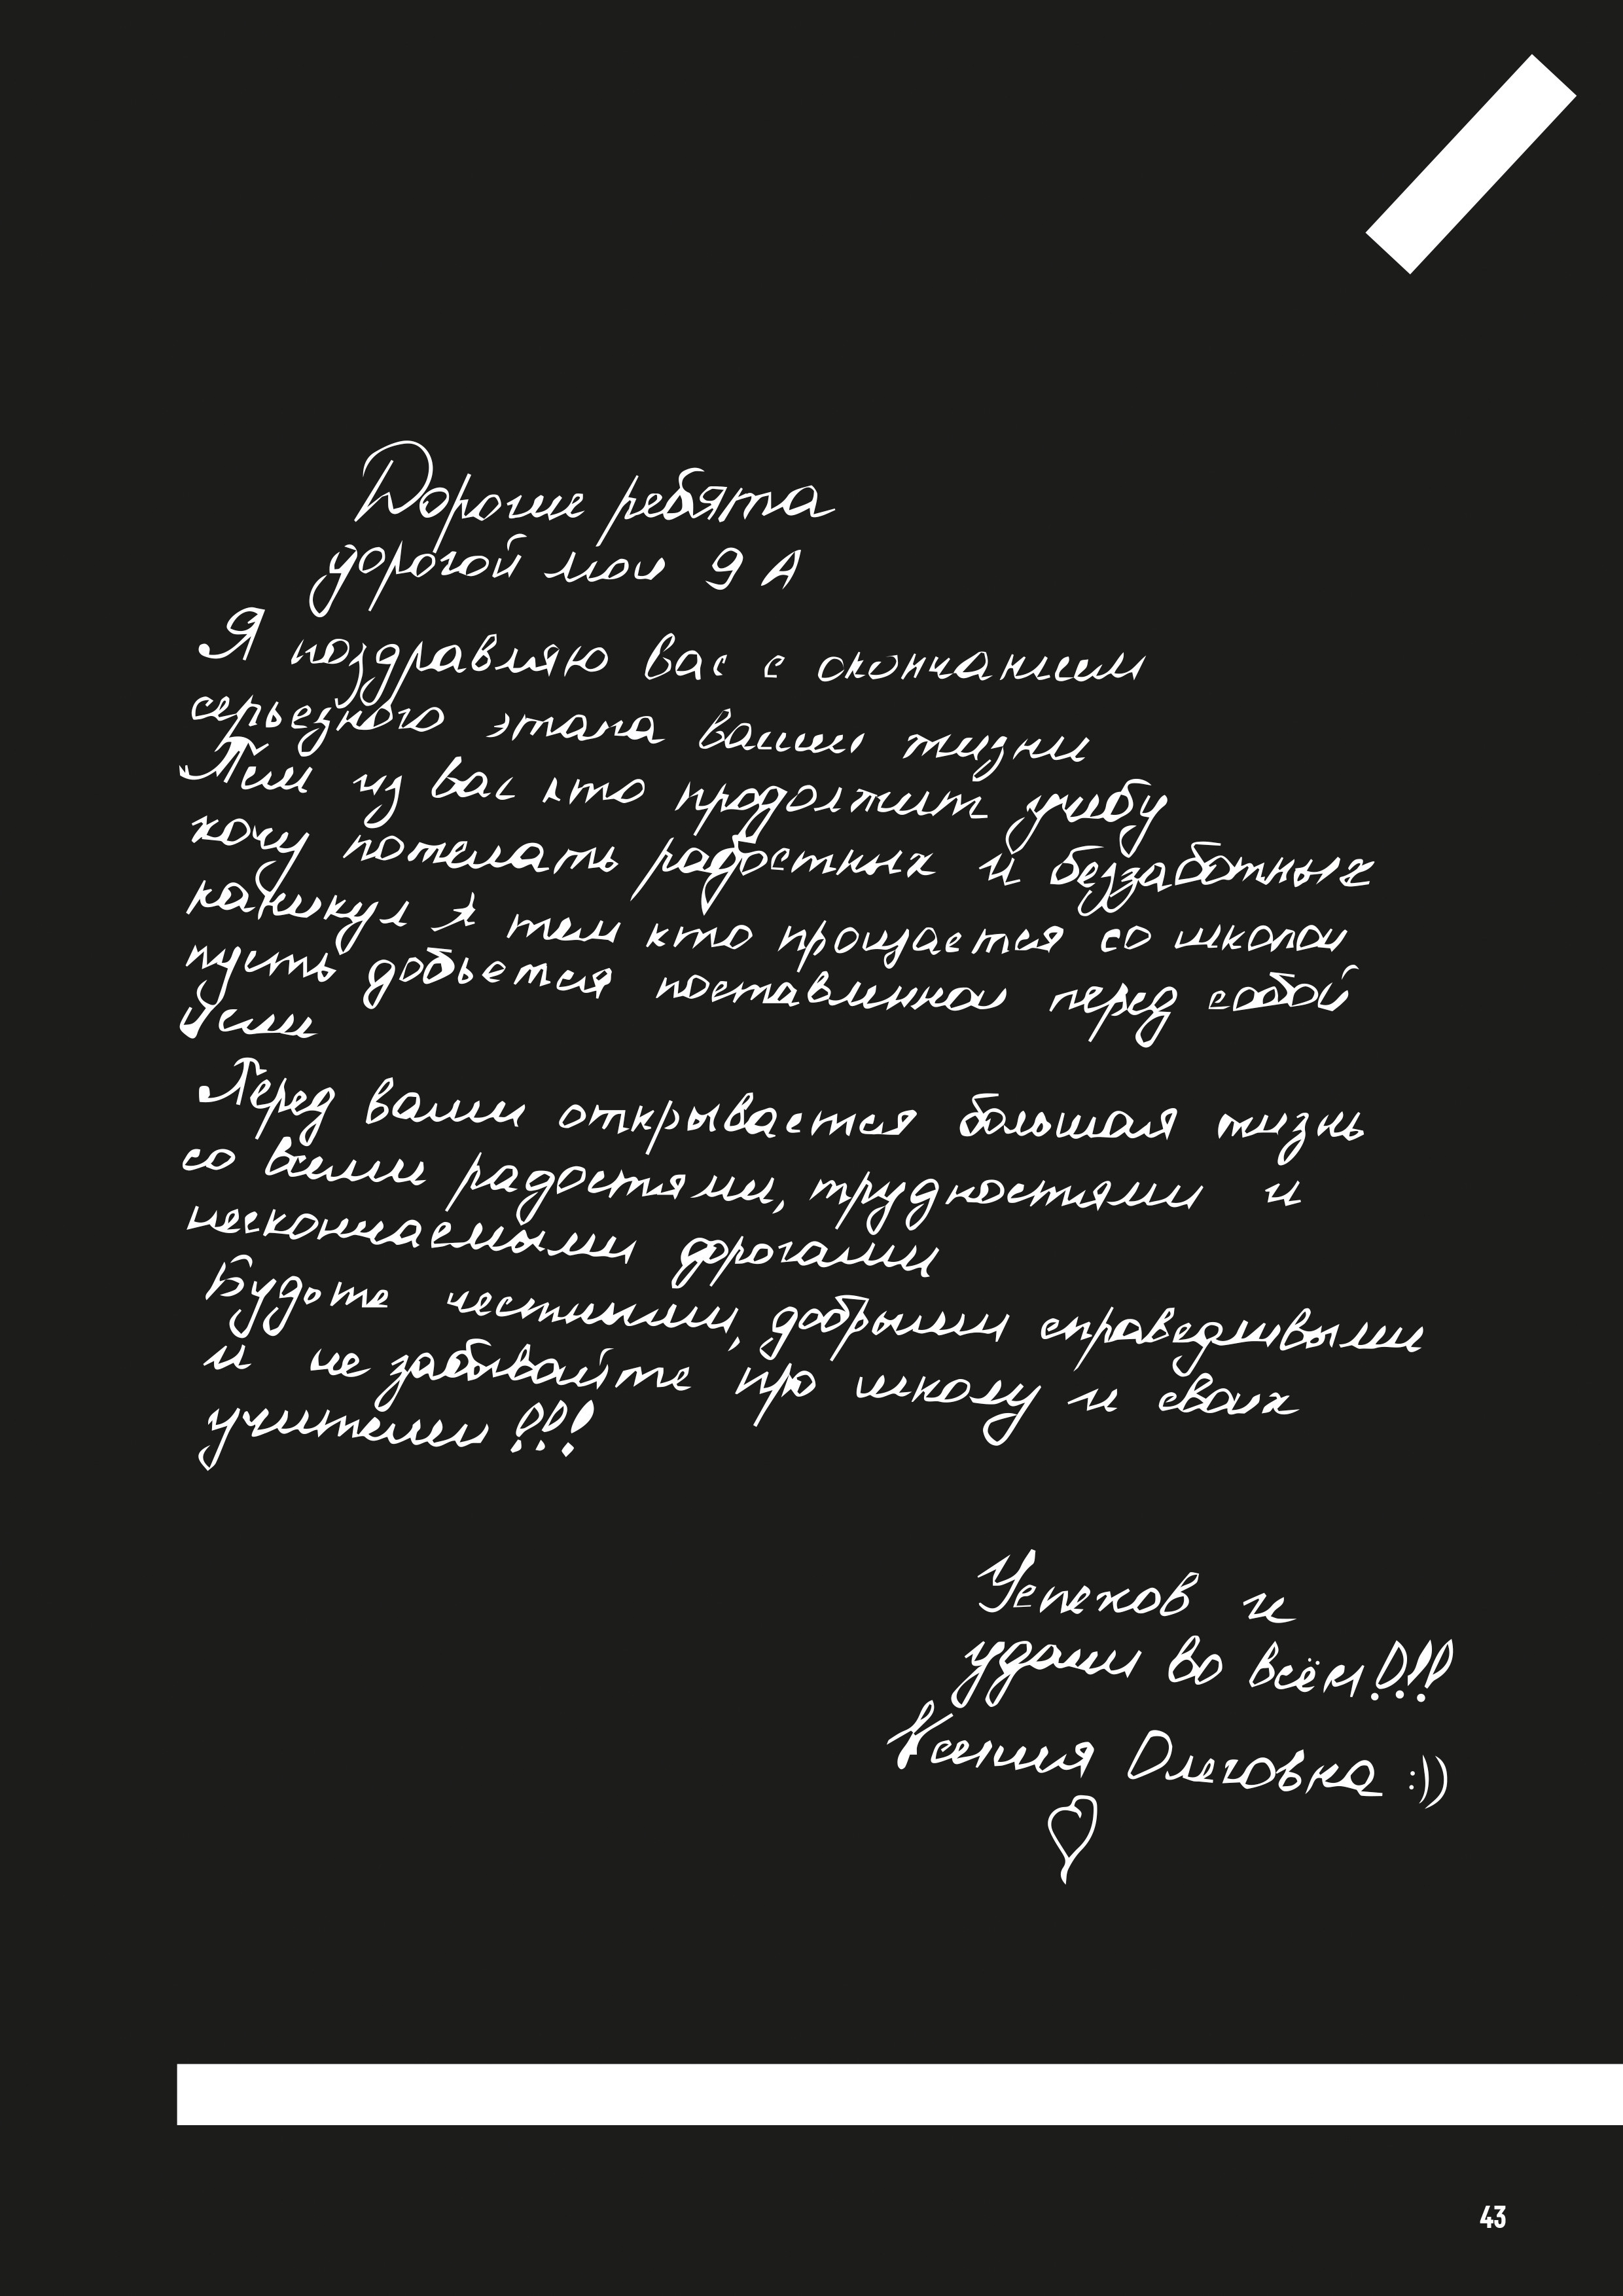 Дорогие ребята
дорогой мой 9 А
Я поздравляю вас с окончанием
серьезного этапа вашей жизни
Тем из вас кто продолжит учебу
хочу пожелать радостных и беззаботных
каникул А тем кто прощается со школой
пусть добьется поставленной перед собой
цели
Перед вами открывается большая жизнь
со всеми радостями, трудностями и
нескончаемыми дорогами
Будьте честными, добрыми справедливыми
и не забывайте про школу и своих
учителей!!!
Успехов и
удачи во всём!!!
Ксения Олеговна :))
43